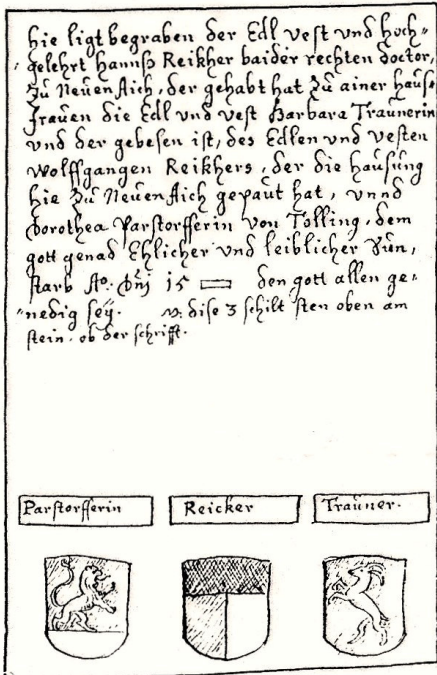 hie ligt begraben der Edl vest und hoch=
gelehrt Hannß Reikher baider rechten doctor,
Zu Neuen Aich, der gehabt hat Zu ainer hauß=
frauen die Edl und vest Barbara Traunerin
und der gebesen ist, des Edlen und vesten
wolffgangen Reikhers, der die hausung
hie Zu Neuen Aich gepaut hat, unnd
Dorothea Parstorfferin von Tolling, dem
gott genad Ehlicher und leiblicher Sun,
starb Ao: Dnj 15 den gott allen ge=
nedig seÿ. N: dise 3 schilt sten oben am
stein. ob der schrifft.
Parstorfferin Reicker Trauner.